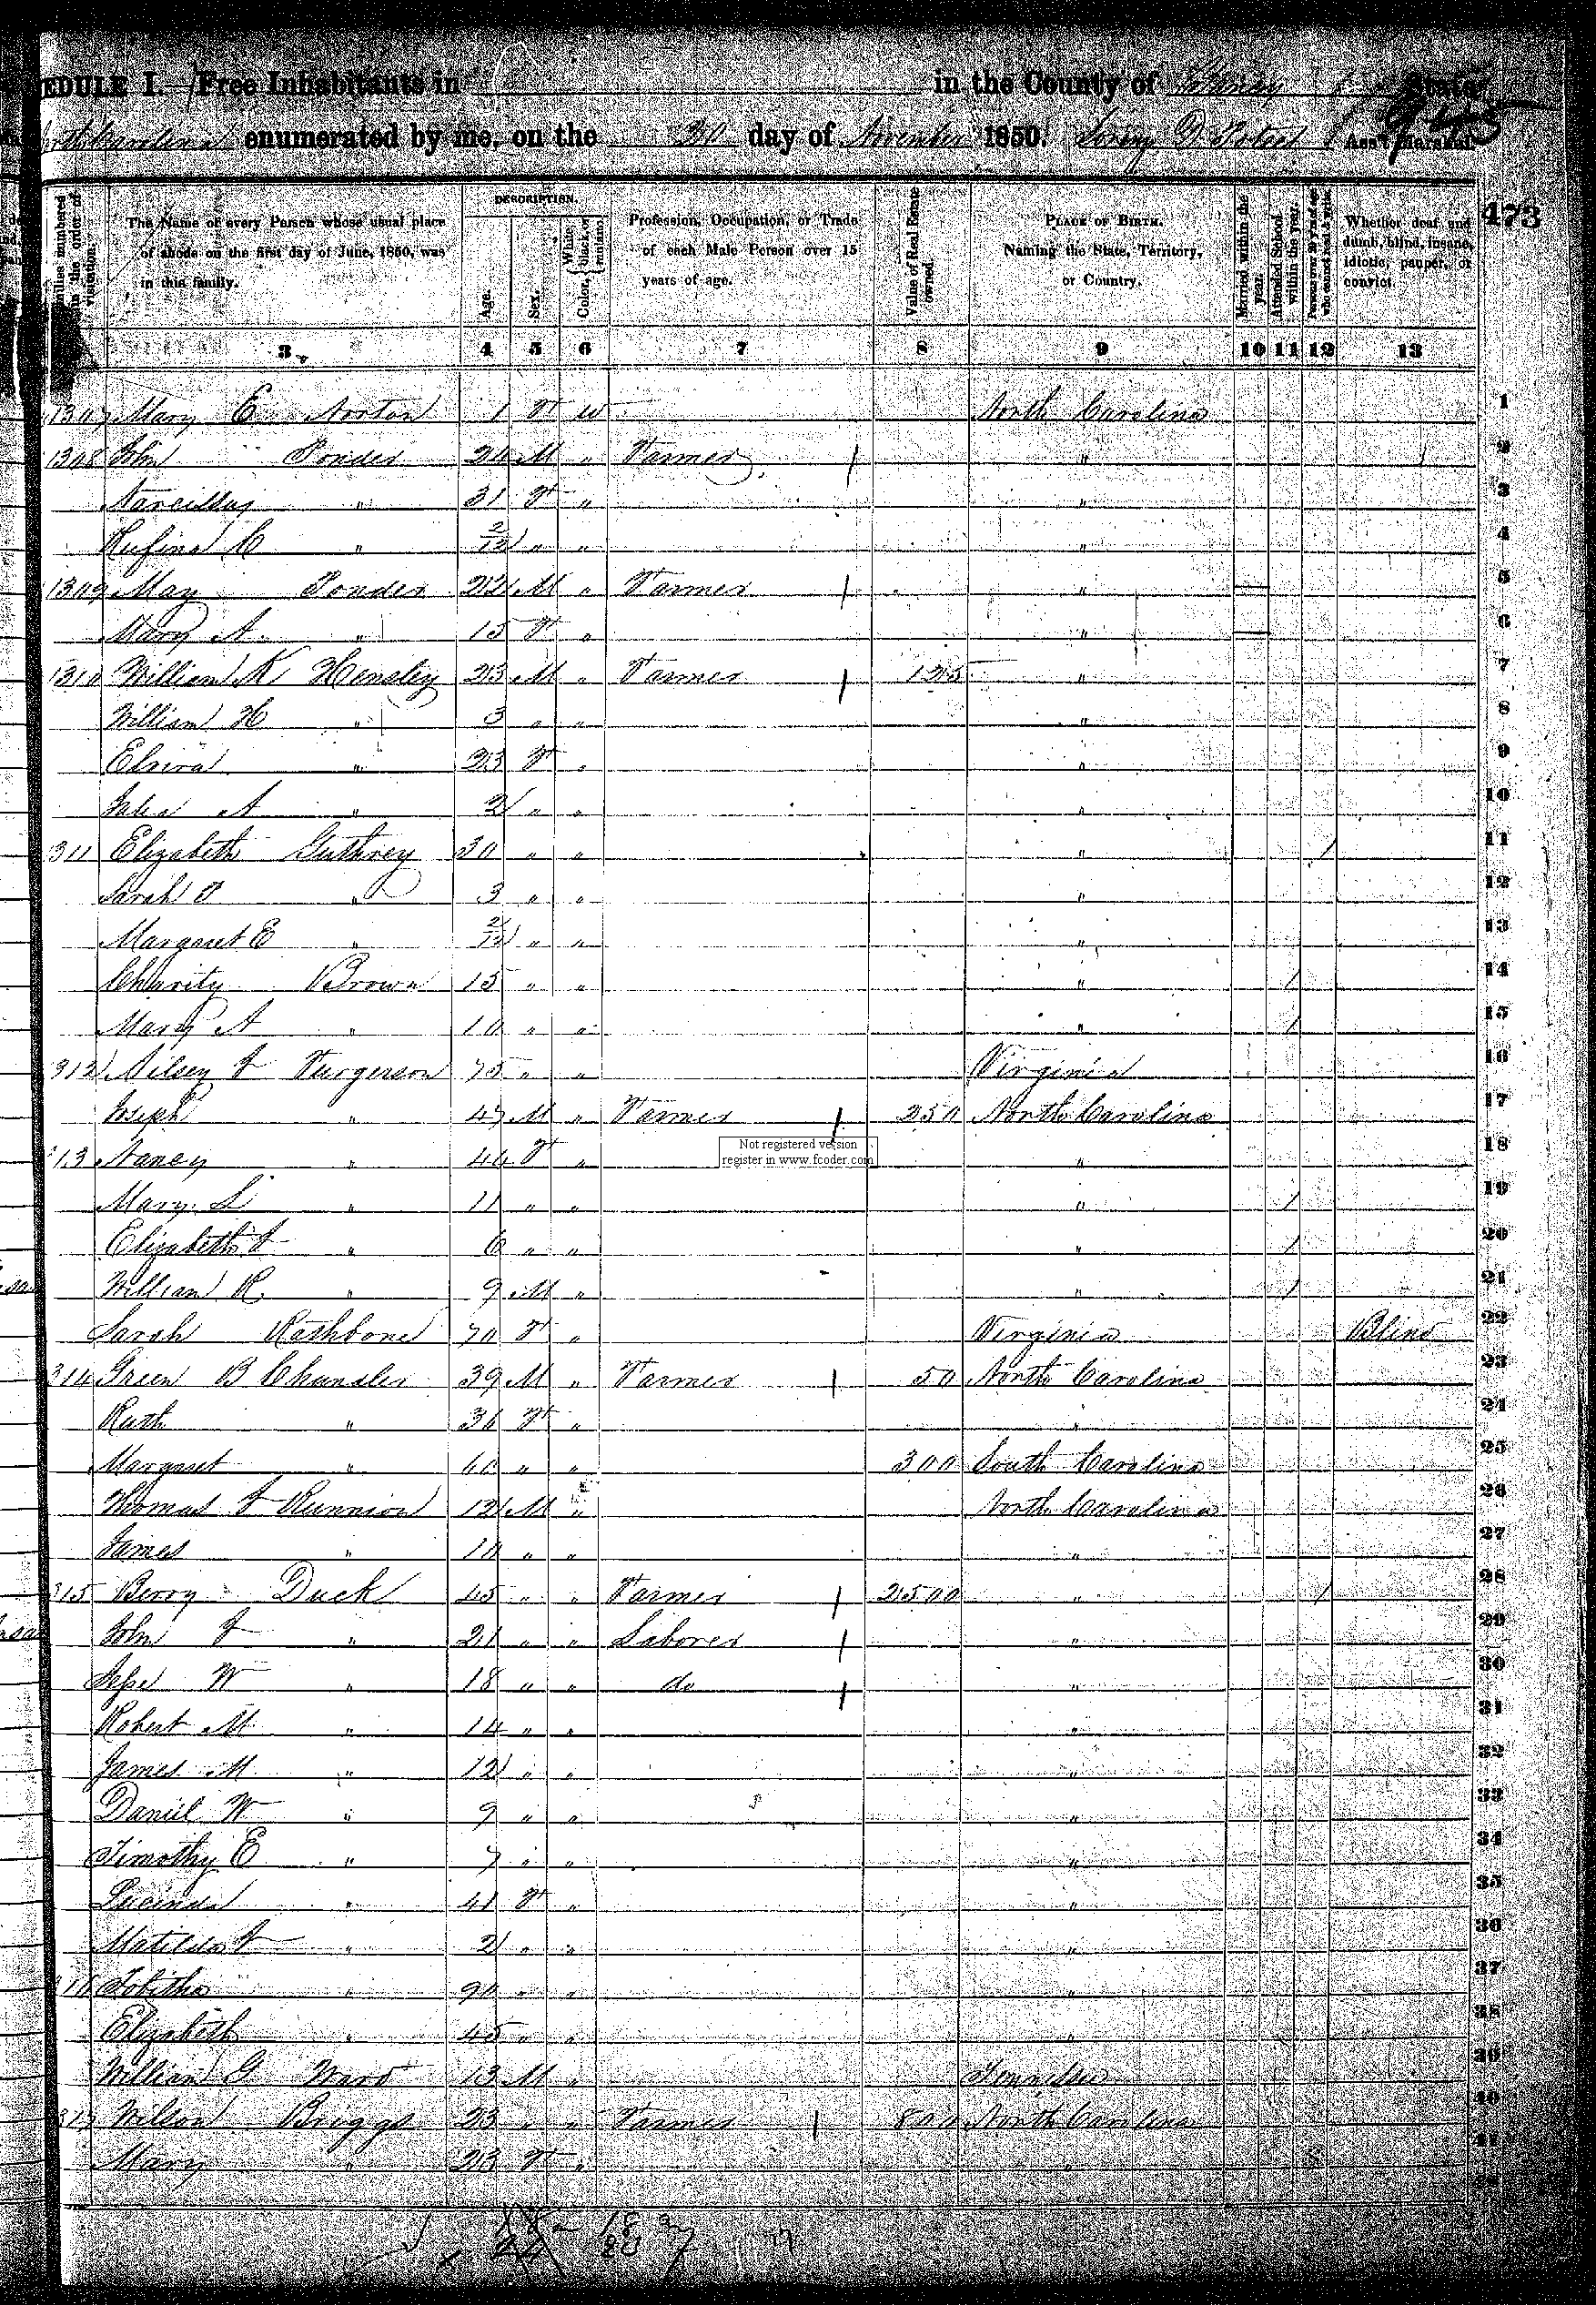 EDULE I. Free Inhabitants in in the County of Yancey State
North Carolina enumerated by me, on the 30 day of November 1850. Ass't Marshal.
473
Families numbered in the order of visitation.
The Name of every Person whose usual place of abode on the first day of June, 1850, was in this family.
DESCRIPTION.
Age.
Sex.
Color, White, black, or mulatto.
Profession, Occupation, or Trade of each Male Person over 15 years of age.
Value of Real Estate owned.
PLACE OF BIRTH. Naming the State, Territory, or Country.
Married within the year.
Attended School within the year.
Persons over 20 y'rs of age who cannot read & write.
Whether deaf and dumb, blind, insane, idiotic, pauper, or convict.
3 4 5 6 7 8 9 10 11 12 13
1307 Mary E Norton 1 F W North Carolina 1
1308 John Ponder 24 M " Farmer " / 2
Narcissus " 31 F " " 3
Rufina C " 2/12 " " " 4
1309 May Ponder 22 M " Farmer " 5
Mary A. " 15 F " " 6
1310 William K Hensley 23 M " Farmer 125 " 7
William H " 3 " " " 8
Elvira " 23 F " " 9
Julia A " 2 " " " 10
311 Elizabeth Guthrey 30 " " " / 11
Sarah " 3 " " " 12
Margaret E " 2/12 " " " 13
Charity Brown 15 " " " / 14
Mary A " 10 " " " / 15
312 Furgerson 75 " " Virginia 16
Joseph " 47 M " Farmer 250 North Carolina 17
Not registered version
register in www.fcoder.com
313 Nancy " 44 F " " 18
Mary L " 11 " " " / 19
Elizabeth J " 6 " " " / 20
William R. " 9 M " " / 21
Sarah Rathbone 70 F " Virginia Blind 22
314 Green B Chandler 39 M " Farmer 50 North Carolina 23
Ruth " 36 F " " 24
Margaret " 60 " " 300 South Carolina 25
Thomas J Runnion 12 M " North Carolina 26
James " 10 " " " 27
315 Berry Duck 45 " " Farmer 2500 " / 28
John J " 21 " " Laborer " 29
Jesse W " 18 " " do " 30
Robert M " 14 " " " 31
James M " 12 " " " 32
Daniel W " 9 " " " 33
Timothy E " 7 " " " 34
Lucinda " 41 F " " 35
Matilda J " 2 " " " 36
316 Tobitha " 90 " " " 37
Elizabeth " 45 " " " 38
William G Ward 13 M " Tennessee 39
317 Wilson Briggs 23 " " Farmer 800 North Carolina 40
Mary " 23 F " " 41